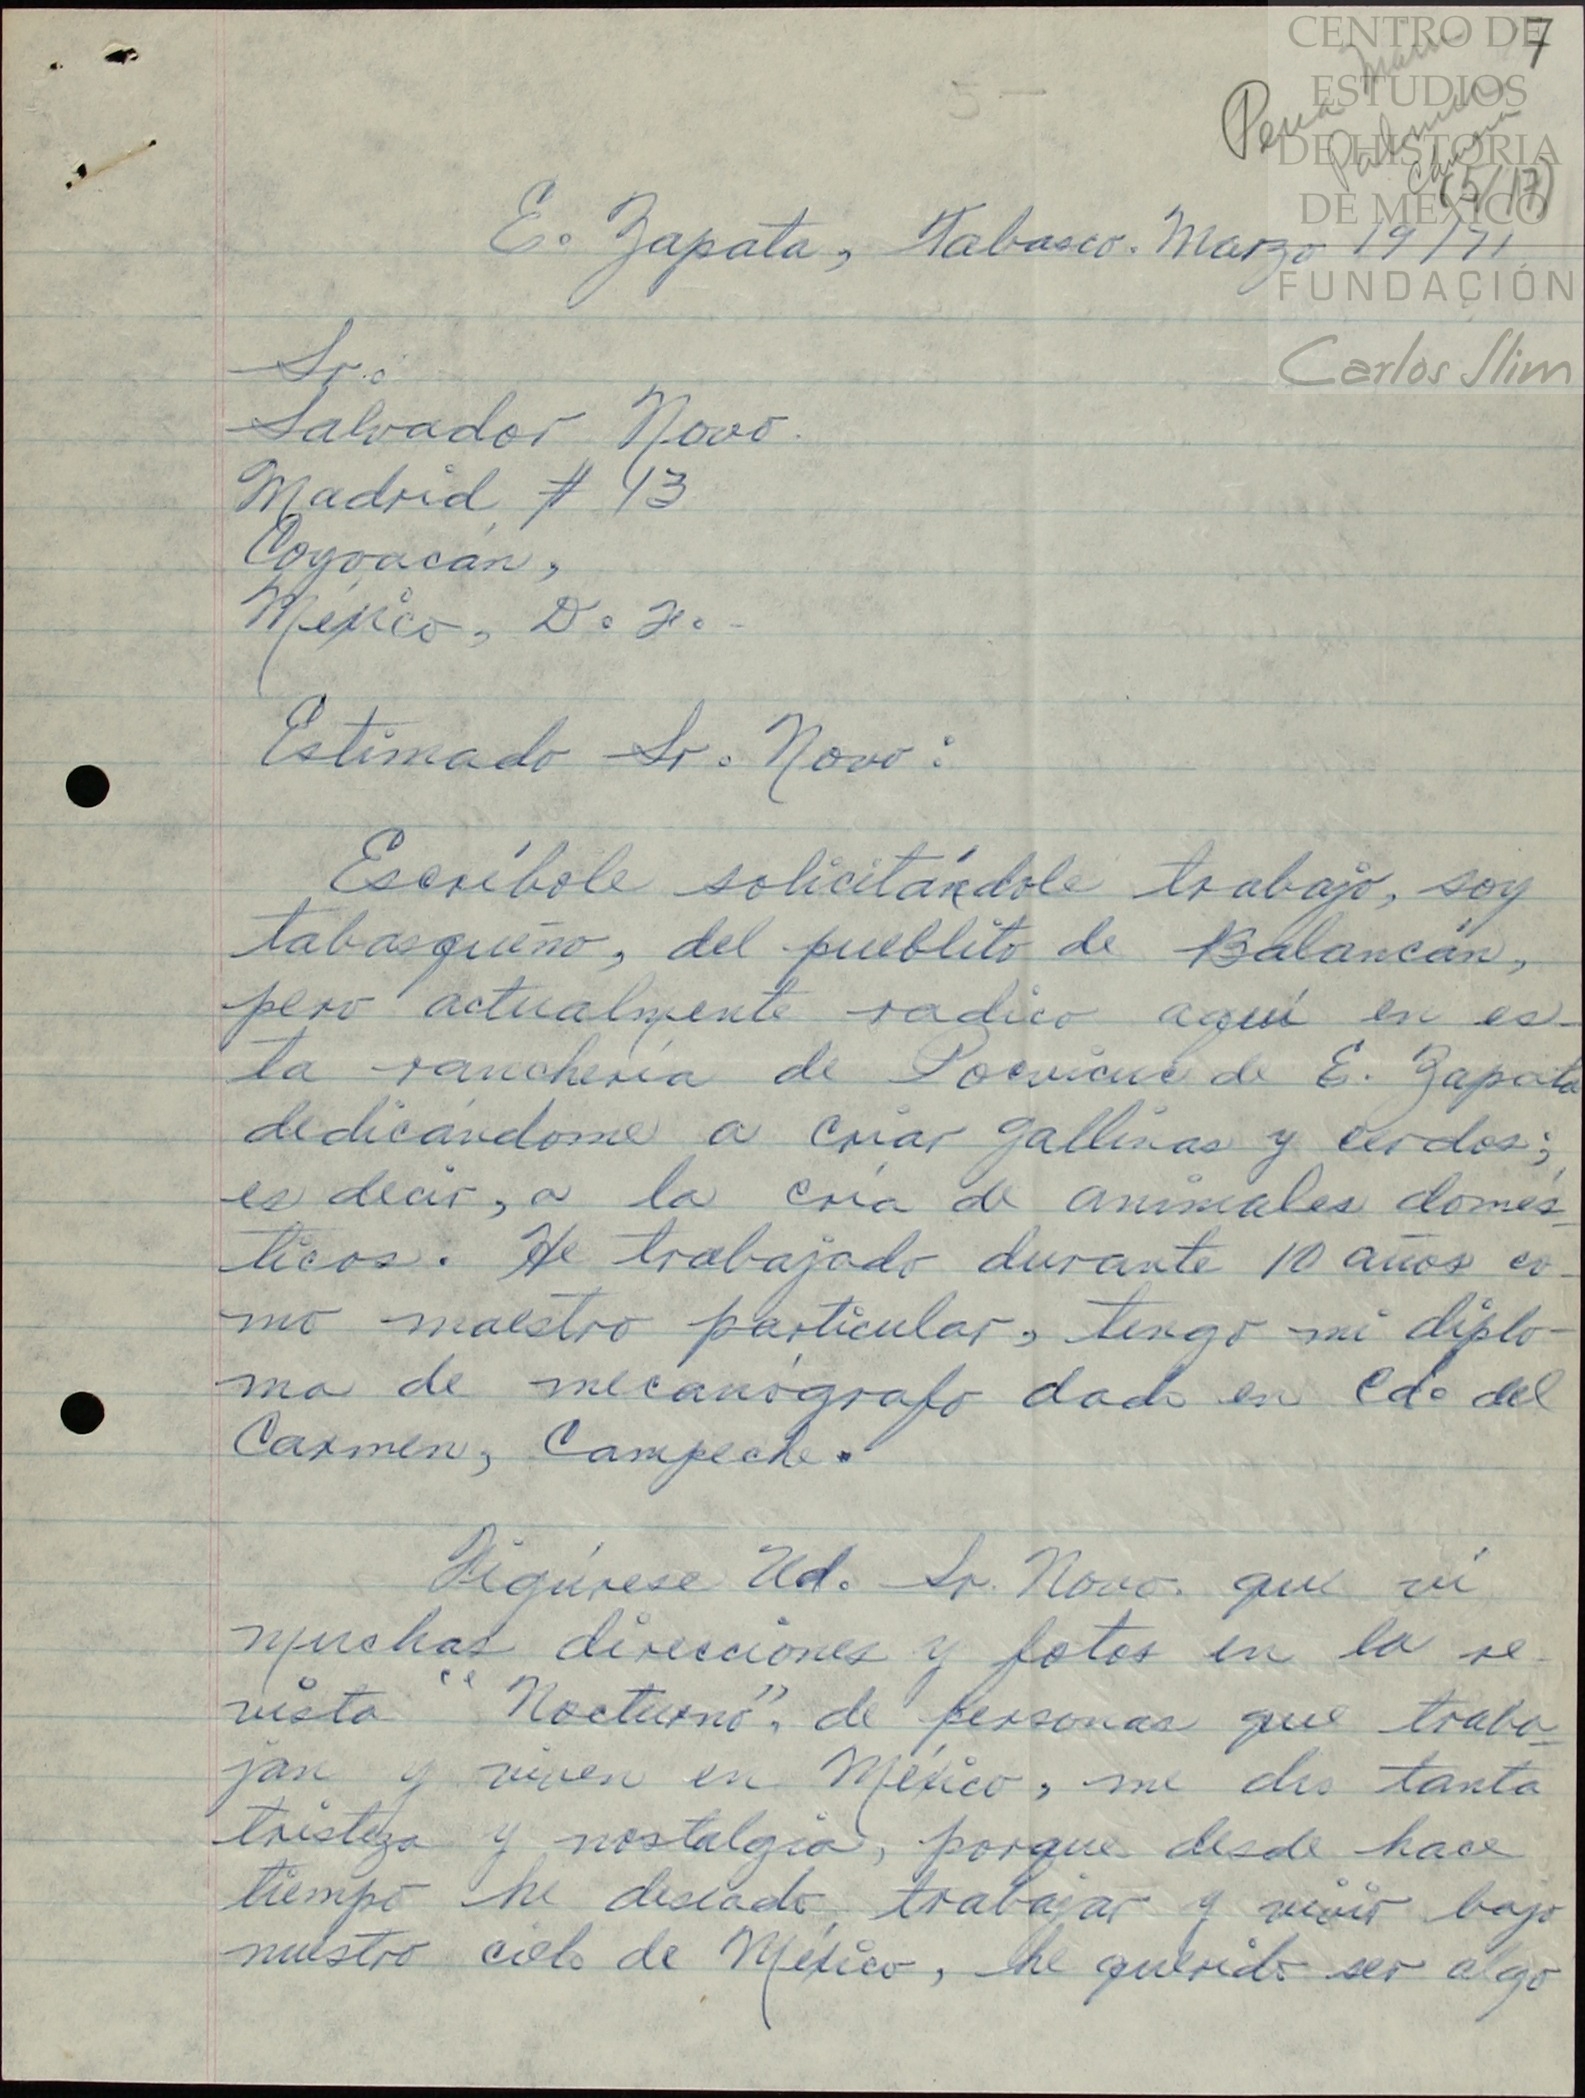 CENTRO DE
ESTUDIOS
DE HISTORIA
DE MÉXICO
FUNDACIÓN
Carlos Slim
7
(5/17)
E. Zapata, Tabasco. Marzo 19/71
Sr.:
Salvador Novo.
Madrid # 13
Coyoacán,
México, D. F. -
Estimado Sr. Novo:
Escríbole solicitándole trabajo, soy
tabasqueño, del pueblito de Balancán,
pero actualmente radico aquí en es-
ta ranchería de de E. Zapata
dedicándome a criar gallinas y cerdos;
es decir, a la cría de animales domés-
ticos. He trabajado durante 10 años co-
mo maestro particular, tengo mi diplo-
ma de mecanógrafo dado en Cd. del
Carmen, Campeche.
Figúrese Ud. Sr. Novo. que ví
muchas direcciones y fotos en la re-
vista "Nocturno", de personas que traba-
jan y viven en México, me dio tanta
tristeza y nostalgia, porque desde hace
tiempo he deseado trabajar y vivir bajo
nuestro cielo de México, he querido ser algo